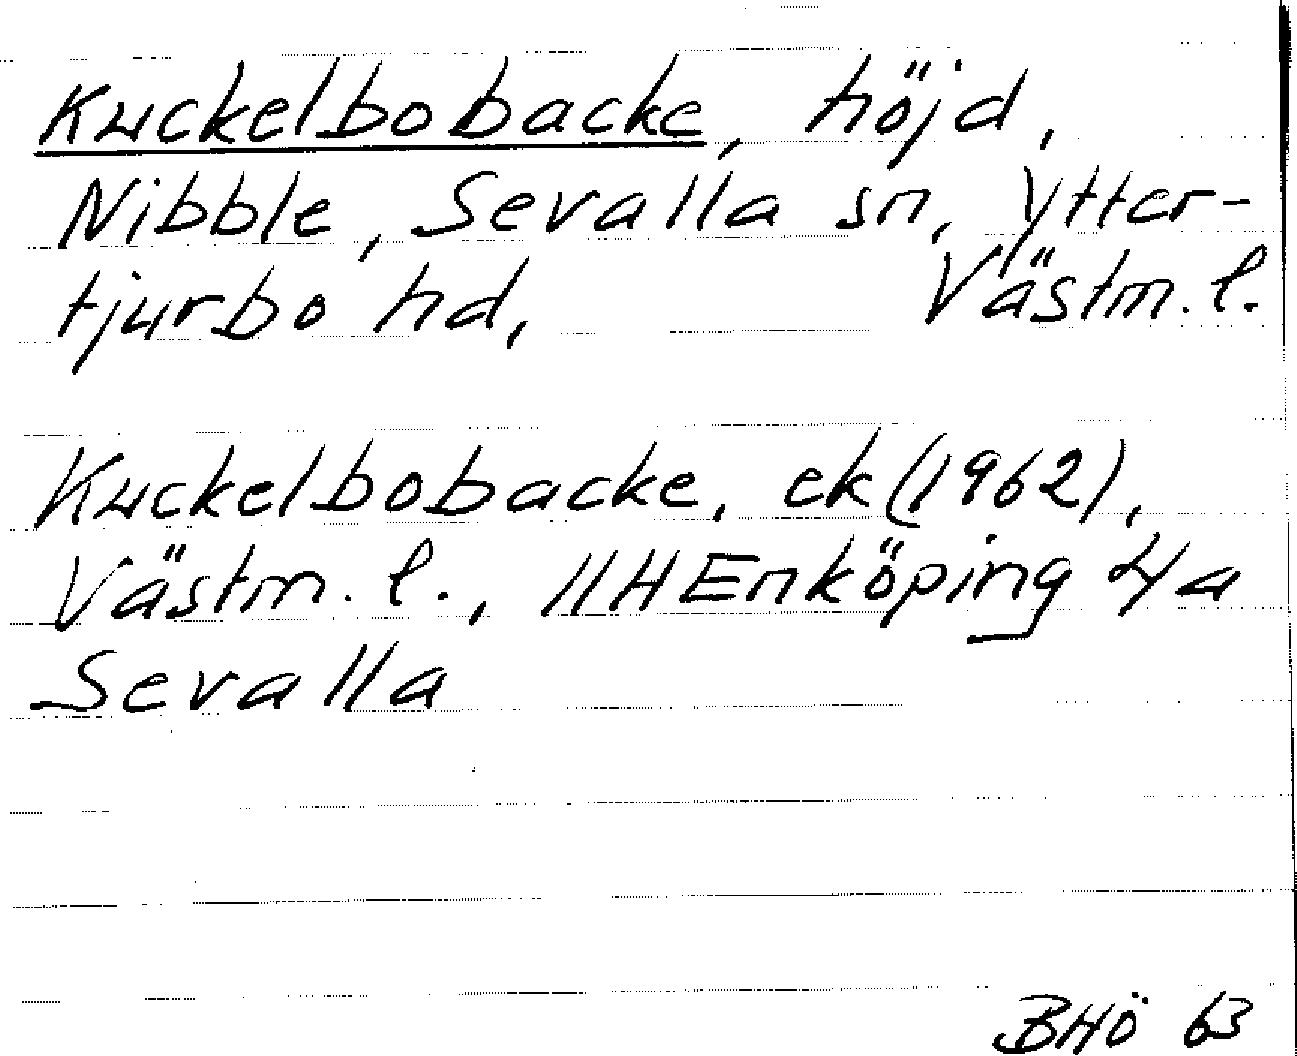 Kuckelbobacke, höjd,
Nibble, Sevalla sn, Ytter-
tjurbo hd, Västm. l.
Kuckelbobacke, ek (1962),
Västm. l., 11H Enköping 4a
Sevalla
BHÖ 63